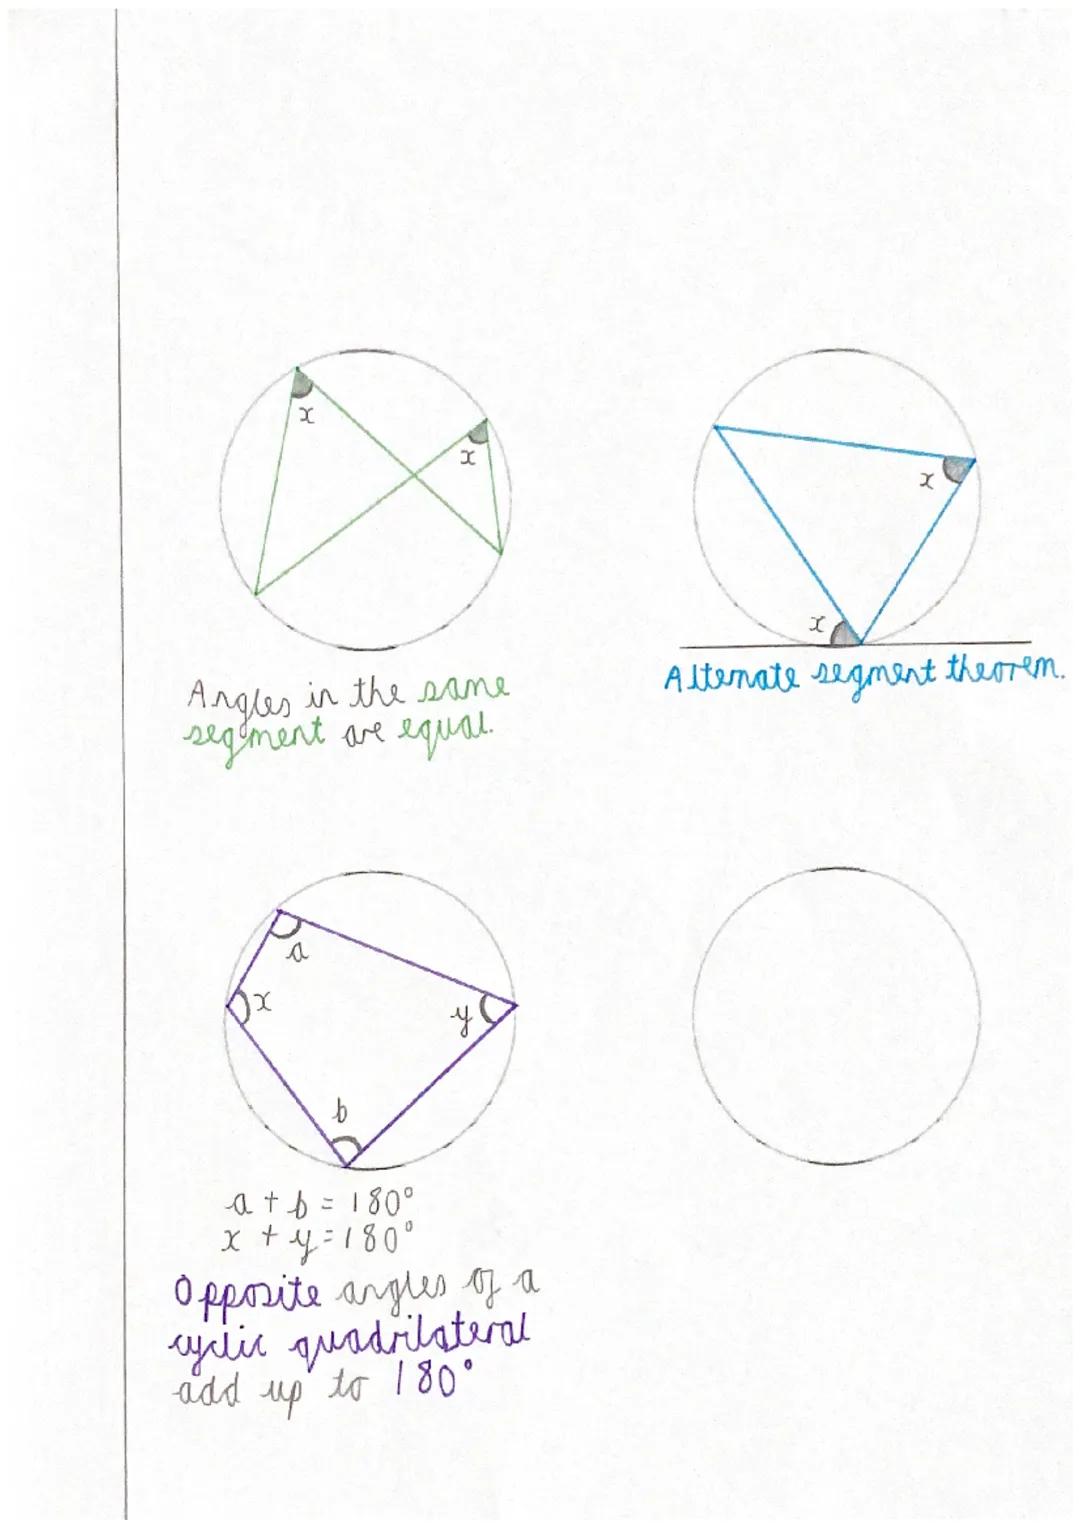 x
x
Angles in the same
segment are equal.
x
x
Alternate segment theorem.
a
x
y
b
a + b = 180°
x + y = 180°
Opposite angles of a
cyclic quadrilateral
add up to 180°